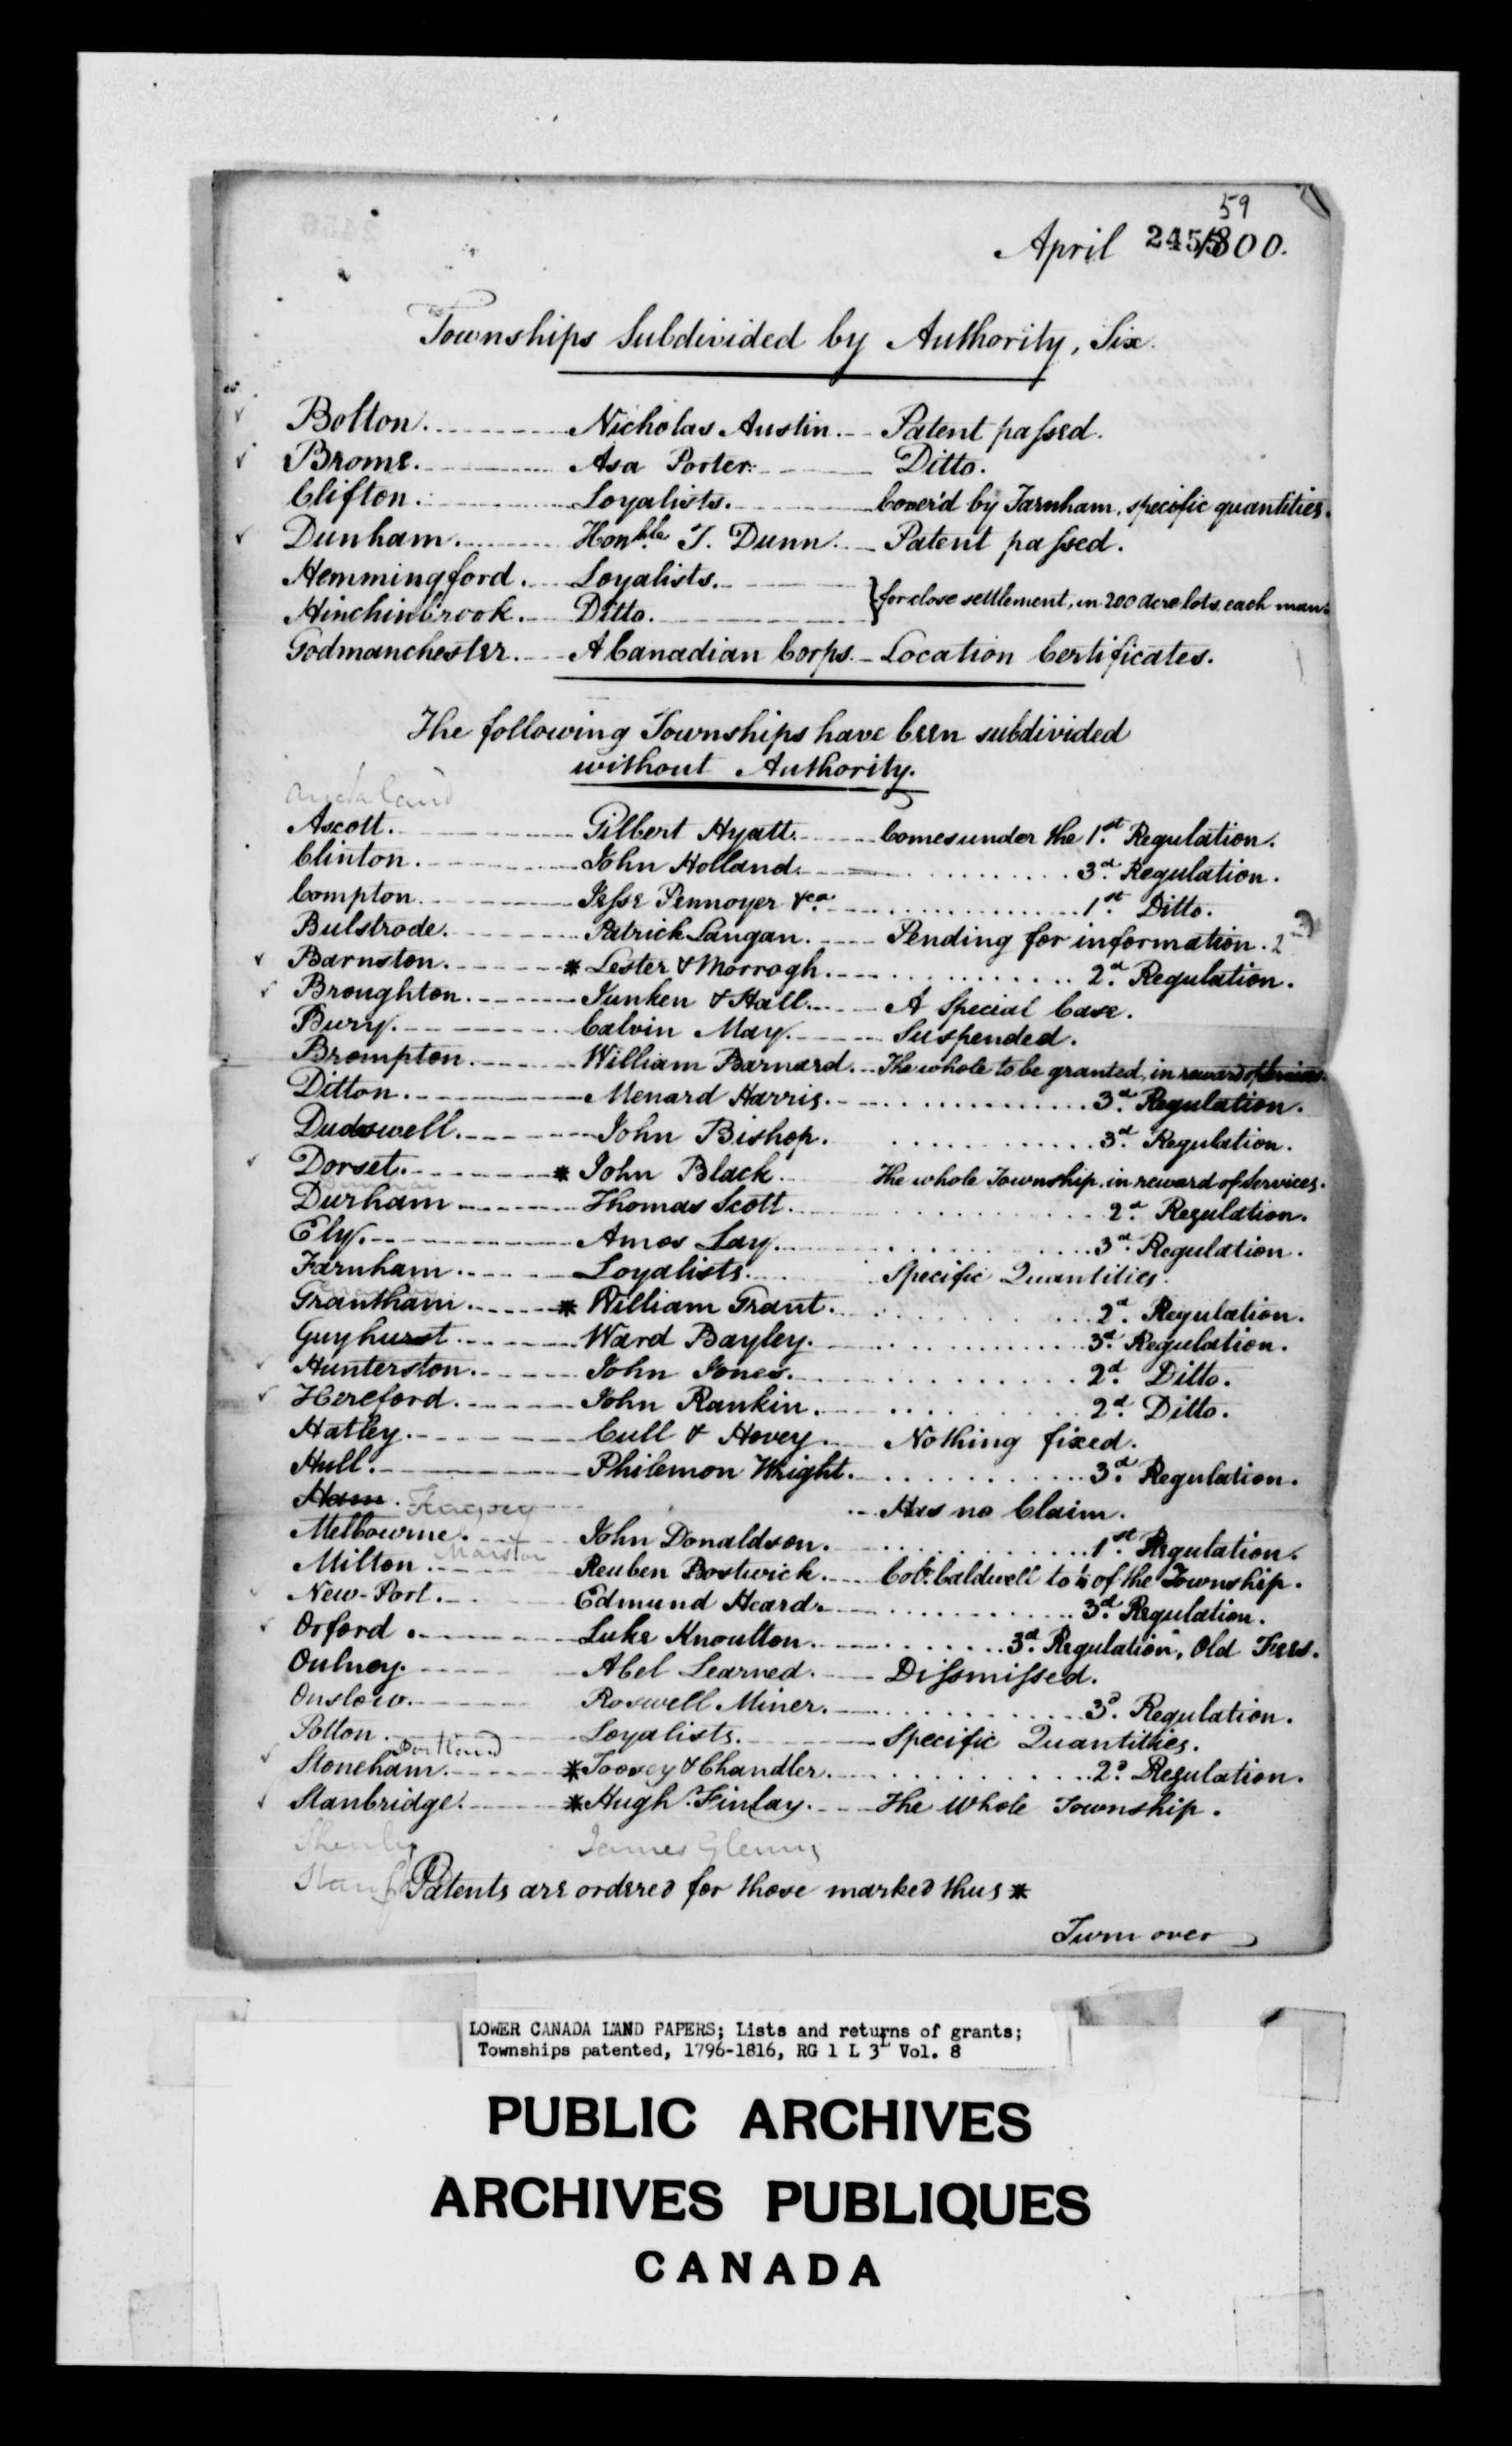 59
April 2455 1800.
Townships Subdivided by Authority, Six.
Bolton. Nicholas Austin. Patent passed.
Brome. Asa Porter. Ditto.
Clifton. Loyalists. Cover'd by Farnham, specific quantities.
Dunham. Honble T. Dunn. Patent passed.
Hemmingford. Loyalists.
Hinchinbrook. Ditto. } for close settlement, in 200 Acre lots each man.
Godmanchester. A Canadian Corps. Location Certificates.
The following Townships have been subdivided
without Authority.
Auckland
Ascott. Gilbert Hyatt. Comes under the 1st Regulation.
Clinton. John Holland. 3d Regulation.
Compton. Jesse Pennoyer &ca 1st Ditto.
Bulstrode. Patrick Langan. Pending for information. 2
Barnston. * Lester & Morrogh. 2d Regulation.
Broughton. Junken & Hall. A Special Case.
Bury. Calvin May. Suspended.
Brompton. William Barnard. The whole to be granted, in reward of Services.
Ditton. Menard Harris. 3d Regulation.
Dudswell. John Bishop. 3d Regulation.
Dorset. * John Black. The whole Township, in reward of Services.
Durham. Thomas Scott. 2d Regulation.
Ely. Amos Lay. 3d Regulation.
Farnham. Loyalists. Specific Quantities.
Grantham. * William Grant. 2d Regulation.
Guyhurst. Ward Bayley. 3d Regulation.
Hunterston. John Jones. 2d Ditto.
Hereford. John Rankin. 2d Ditto.
Hatley. Cull & Hovey. Nothing fixed.
Hull. Philemon Wright. 3d Regulation.
Ham. Has no Claim.
Melbourne. John Donaldson. 1st Regulation.
Marston
Milton. Reuben Bostwick. Colo. Caldwell to ¼ of the Township.
New-Port. Edmund Heard. 3d Regulation.
Orford. Luke Knoulton. 3d Regulation, Old Fees.
Oulney. Abel Learned. Dissmissed.
Onslow. Roswell Miner. 3d Regulation.
Potton. Loyalists. Specific Quantities.
Portland
Stoneham. * Toosey & Chandler. 2d Regulation.
Stanbridge. * Hugh Finlay. The Whole Township.
Shenley James Glenny
Patents are ordered for those marked thus *
Turn over
LOWER CANADA LAND PAPERS; Lists and returns of grants;
Townships patented, 1796-1816, RG 1 L 3L Vol. 8
PUBLIC ARCHIVES
ARCHIVES PUBLIQUES
CANADA